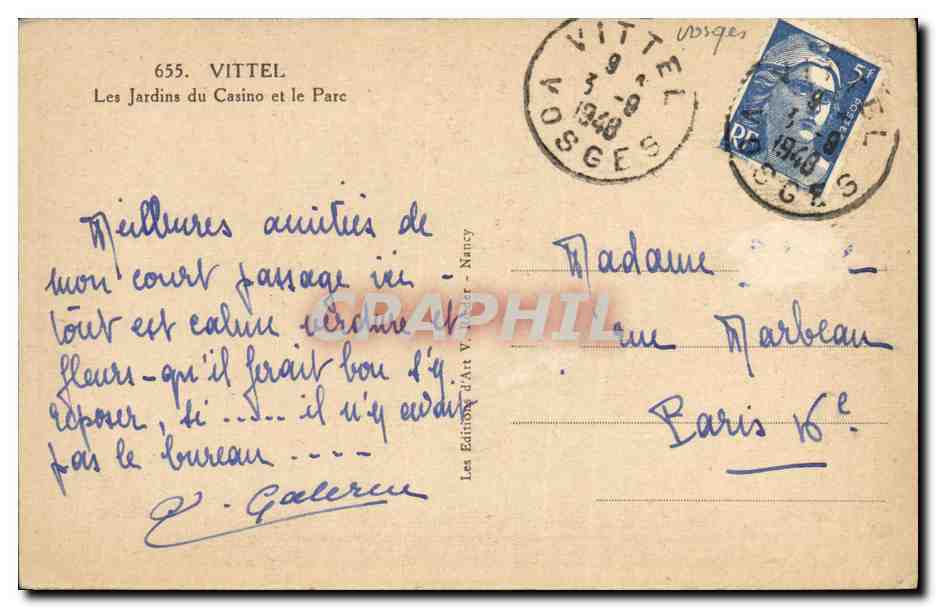 655. VITTEL
Les Jardins du Casino et le Parc
Meilleures amitiés de
mon court passage ici -
tout est calme verdure et
fleurs - qu'il ferait bon s'y
reposer, si ..... il n'y avait
pas le bureau ....
Les Editions d'Art V. - Nancy
VITTEL
9
3 - 9
1948
VOSGES
vosges
5F
POSTES
RF
VITTEL
9
3 - 9
1948
VOSGES
Madame
rue Marbeau
Paris 16e.
CPARHIL